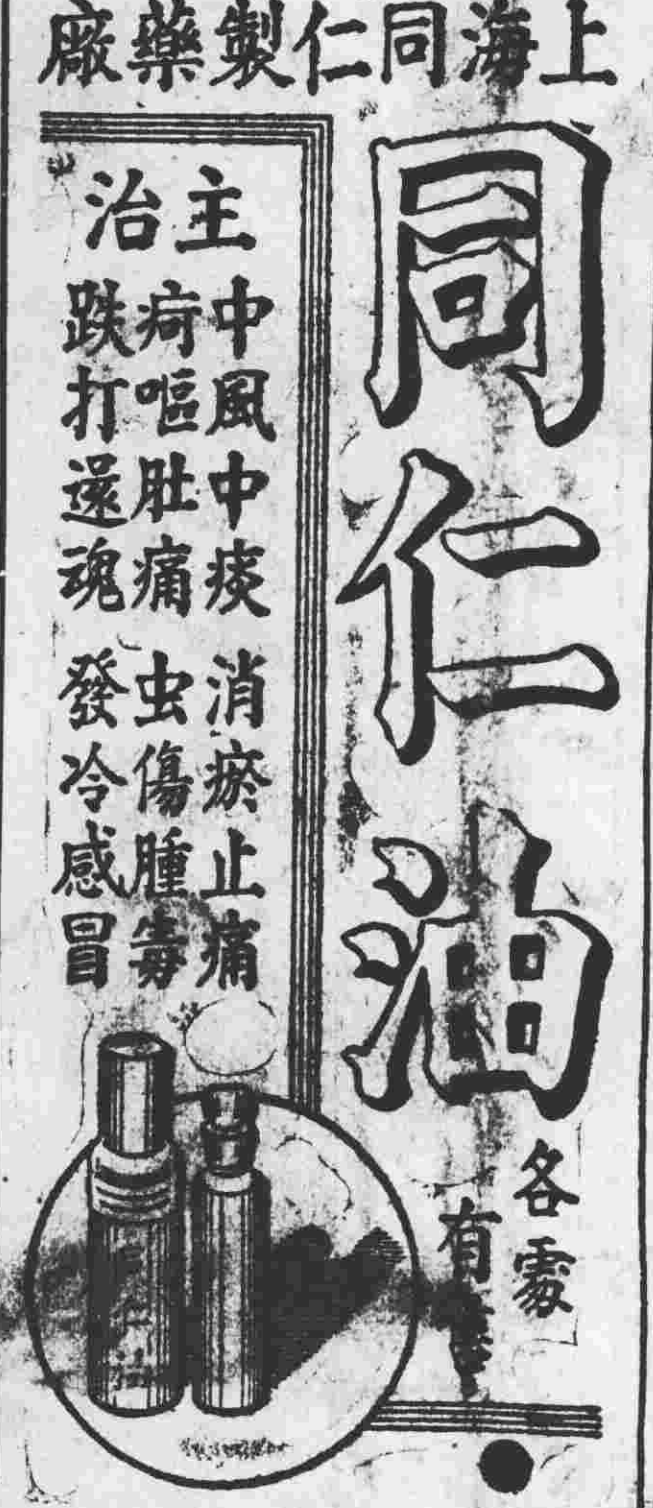 上海同仁製藥廠
同仁油
各處
有
主治
中風中痰 消瘀止痛
疴嘔肚痛 虫傷腫毒
跌打還魂 發冷感冒